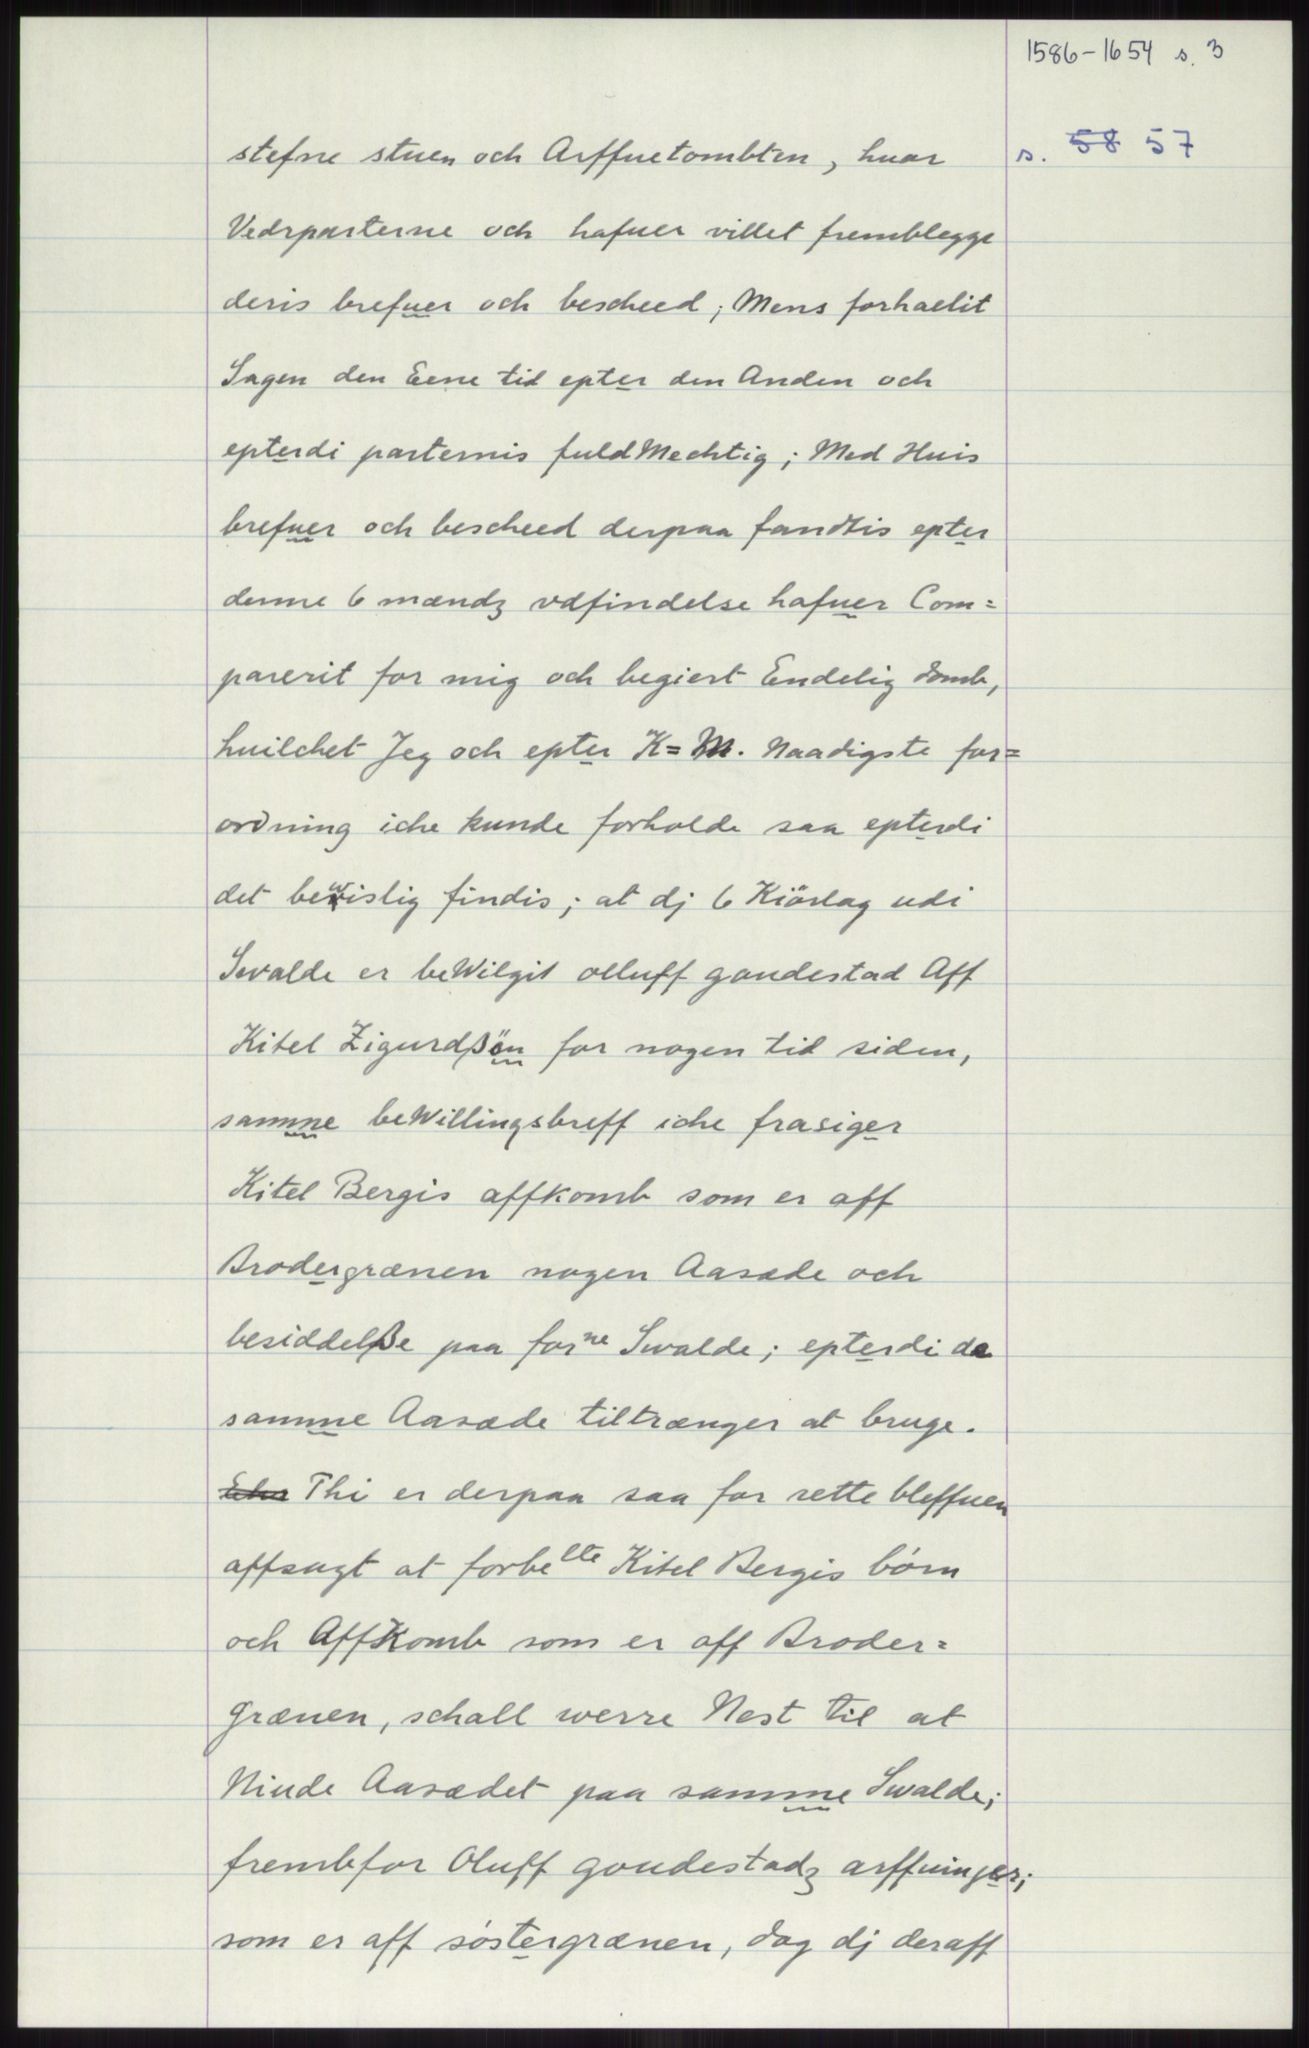 1586-1654 s. 3
s. 58 57
stefne stuen och Arffuetombten, huar
Vedrparterne och hafuer villet fremblegge
deris brefuer och bescheed; Mens forhaelit
Sagen den Eene tid epter den Anden och
epterdi parternis fuldMechtig; Med Huis
brefuer och bescheed derpaa fandtis epter
denne 6 mændz vdfindelse hafuer Com=
parerit for mig och begiert Endelig domb,
huilchet Jeg och epter K=M. Naadigste for=
ordning iche kunde forholde saa epterdi
det bewislig findis; at dj 6 Kiörlag udi
Swalde er beWilgit olluff goudestad Aff
Kitel Zigurdßön for nogen tid siden,
samme beWillingsbreff iche frasiger
Kitel Bergis affkomb som er aff
Brodergrænen nogen Aasæde och
besiddelße paa forne Swalde; epterdi de
samme Aasæde tiltrænger at bruge.
Thi er derpaa saa for rette bleffuen
affsagt at forbelte Kitel Bergis börn
och AffKomb som er aff Broder=
grænen, schall werre Nest til at
Niude Aasædet paa samme Swalde;
frembfor Oluff goudestadz arffuinger;
som er aff söstergrænen, dog dj deraff